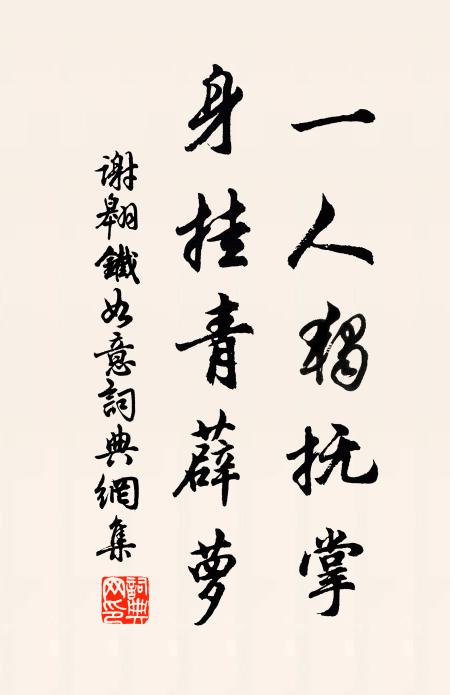 一人獨抚掌
身挂青薜萝
谢翱鐵如意詞典網集
詞典
网印